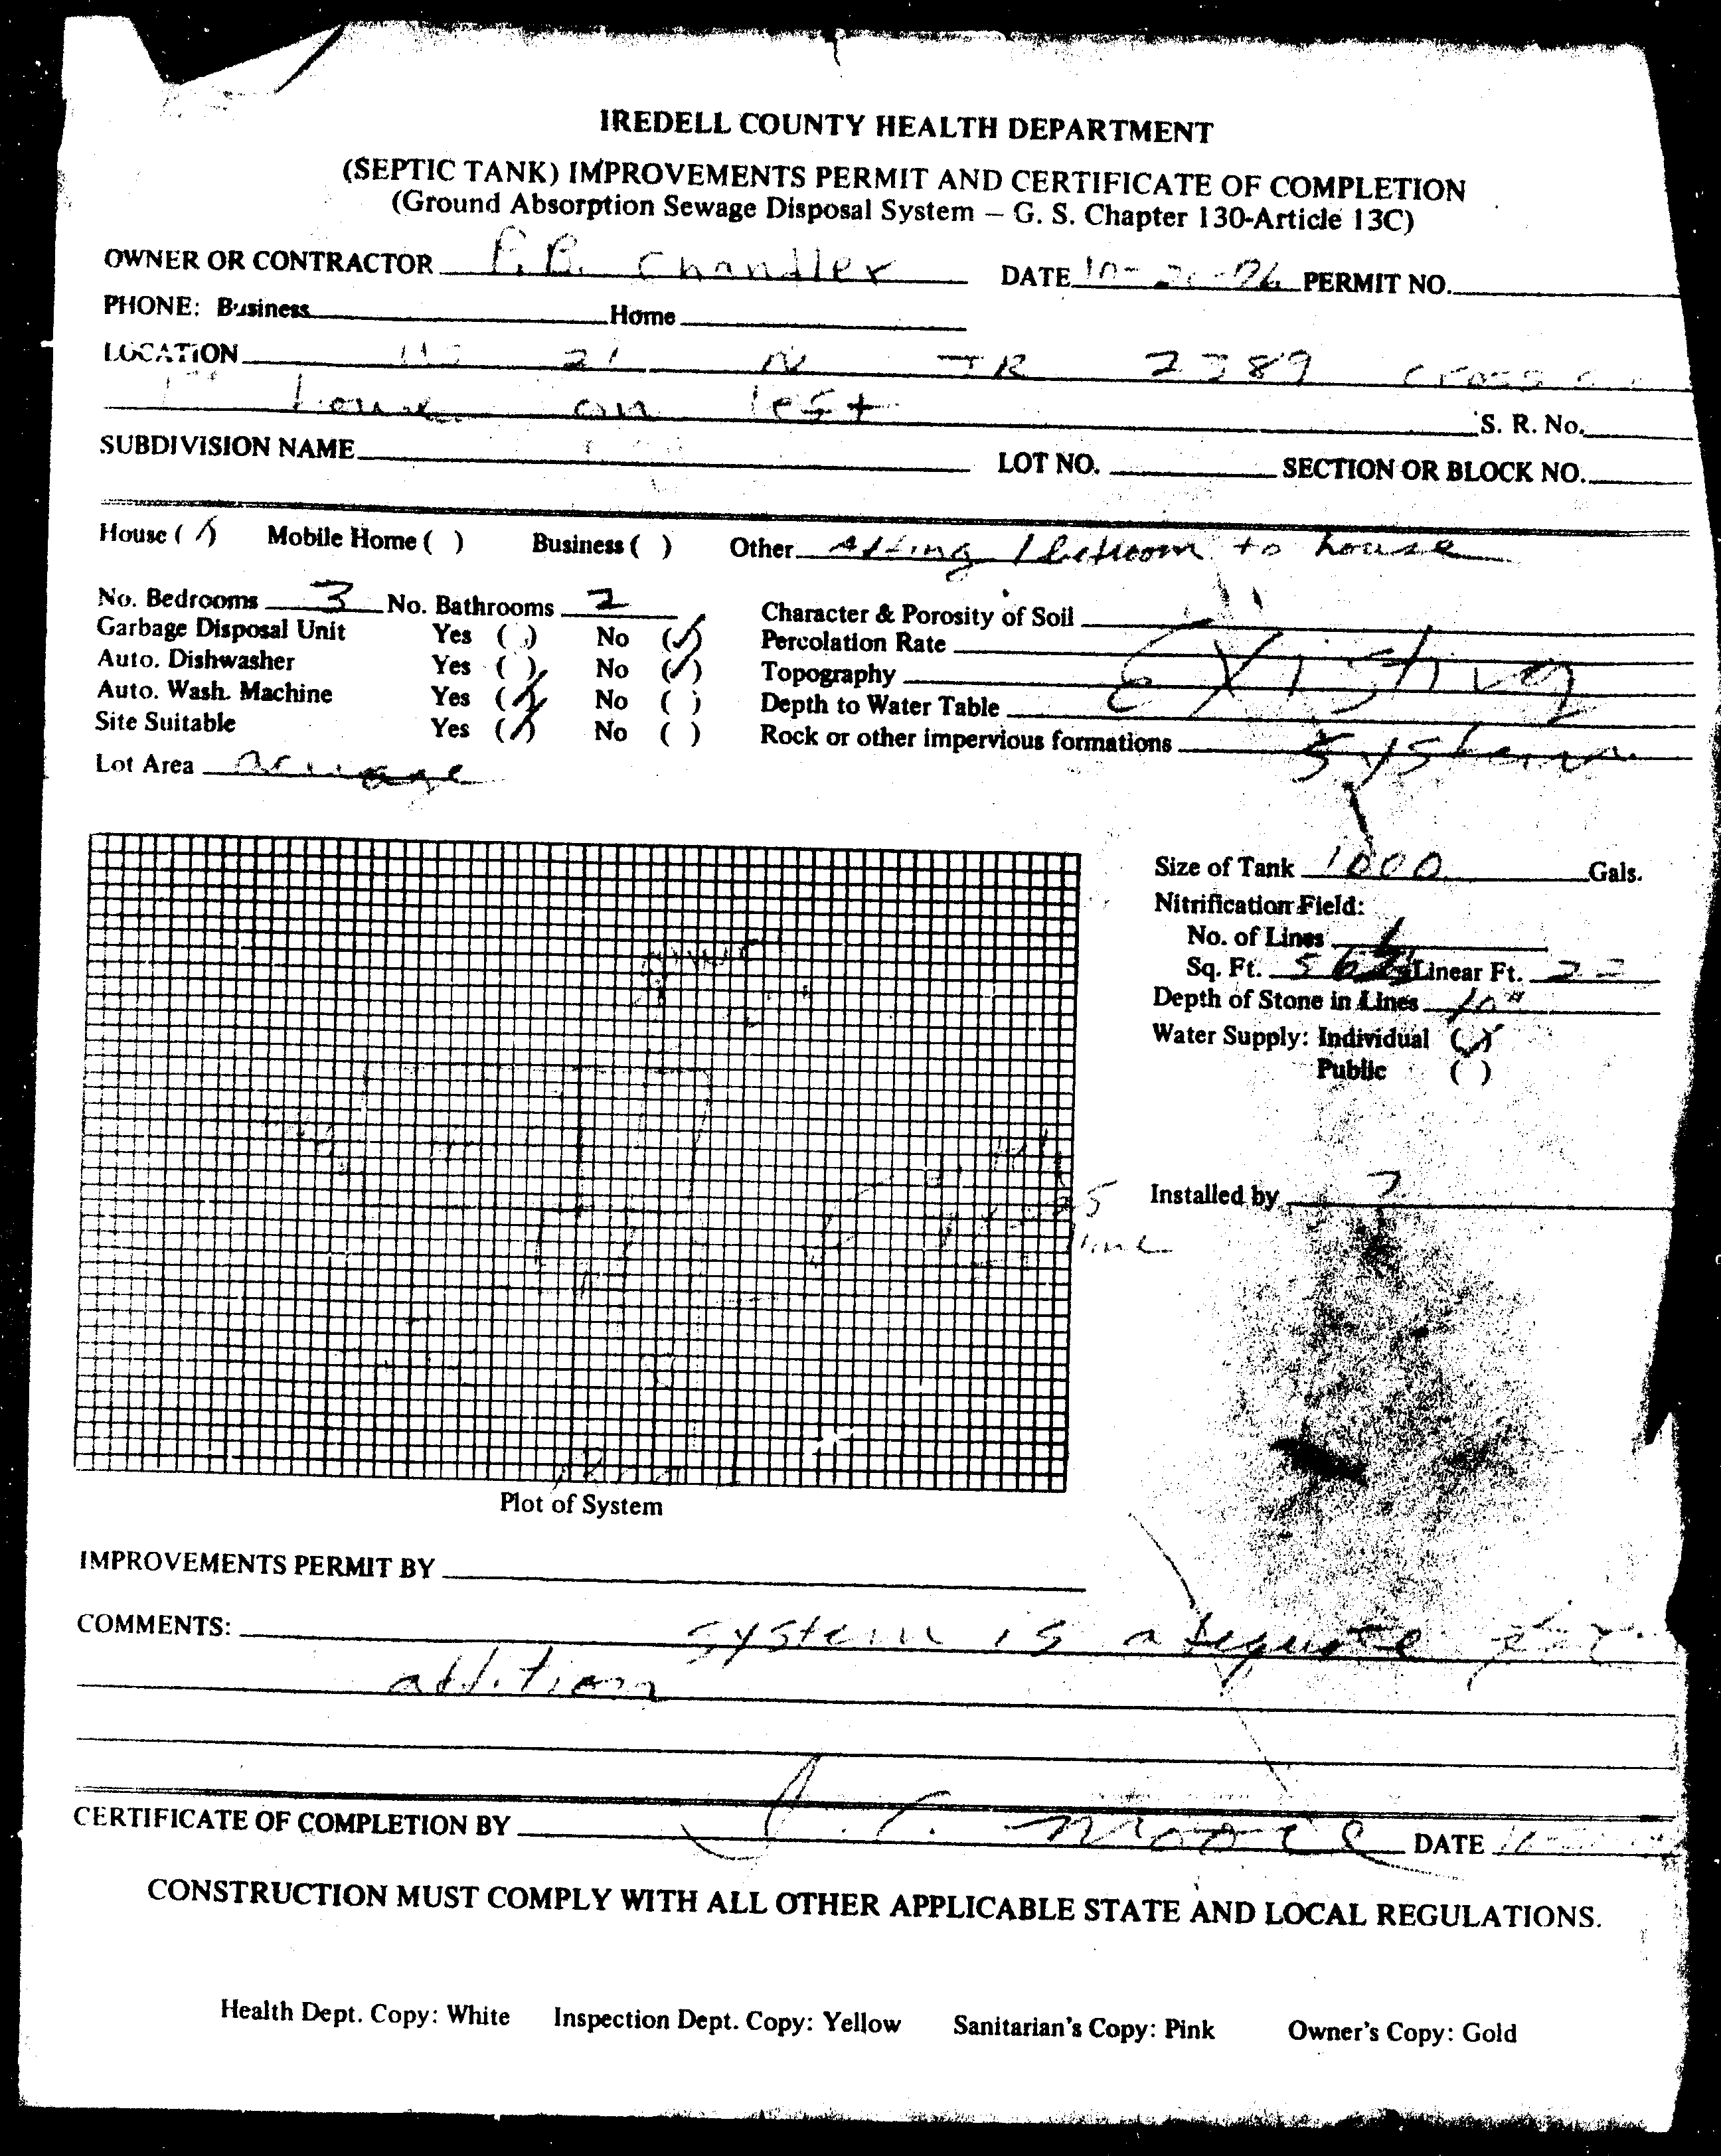 IREDELL COUNTY HEALTH DEPARTMENT
(SEPTIC TANK) IMPROVEMENTS PERMIT AND CERTIFICATE OF COMPLETION
(Ground Absorption Sewage Disposal System – G. S. Chapter 130-Article 13C)
OWNER OR CONTRACTOR Chandler DATE PERMIT NO.
PHONE: Business Home
LOCATION 21 N
house on left S. R. No.
SUBDIVISION NAME LOT NO. SECTION OR BLOCK NO.
House ( ) Mobile Home ( ) Business ( ) Other Adding 1 bedroom to house
No. Bedrooms 3 No. Bathrooms 2 Character & Porosity of Soil
Garbage Disposal Unit Yes ( ) No (✓) Percolation Rate Existing
Auto. Dishwasher Yes ( ) No (✓) Topography
Auto. Wash. Machine Yes (✓) No ( ) Depth to Water Table
Site Suitable Yes (✓) No ( ) Rock or other impervious formations system
Lot Area
Size of Tank 1000 Gals.
Nitrification Field:
No. of Lines
Sq. Ft. Linear Ft.
Depth of Stone in Lines 10"
Water Supply: Individual (✓)
Public ( )
Installed by ?
line
Plot of System
IMPROVEMENTS PERMIT BY
COMMENTS: system is adequate for
addition
CERTIFICATE OF COMPLETION BY Moore DATE
CONSTRUCTION MUST COMPLY WITH ALL OTHER APPLICABLE STATE AND LOCAL REGULATIONS.
Health Dept. Copy: White Inspection Dept. Copy: Yellow Sanitarian's Copy: Pink Owner's Copy: Gold